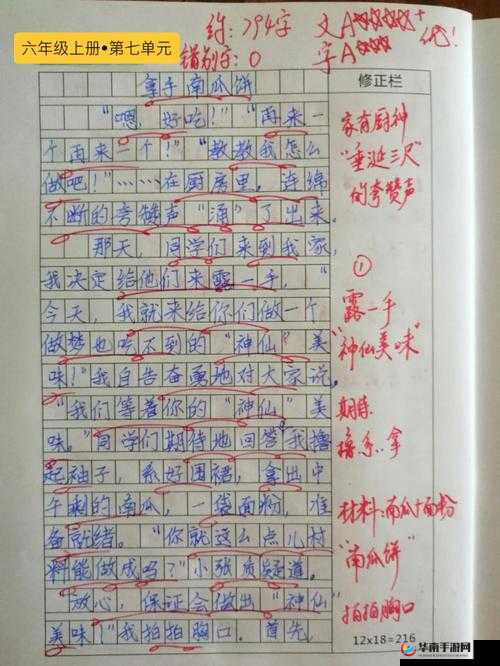 六年级上册•第七单元
约:794字
文A
错别字:0
字A
优!
修正栏
拿手南瓜饼
“嗯,好吃!”“再来一
个再来一个!”“教教我怎么
做吧!”……在厨房里,连绵
不断的夸赞声“涌”了出来。
那天,同学们来到我家,
我决定给他们来露一手,“
今天,我就来给你们做一个
做梦也吃不到的“神仙”美
味!”我自告奋勇地对大家说。
“我们等着你的“神仙”美
味。”同学们期待地回答。我撸
起袖子,系好围裙,拿出中
午剩的南瓜,一袋面粉,准
备就绪。“你就这么点儿材
料能做成吗?”小张质疑道。
“放心,保证会做出“神仙”
美味!”我拍拍胸口。首先,
家有厨神
“垂涎三尺”
的夸赞声
①
露一手
“神仙美味”
期待
撸系..拿
材料:南瓜+面粉
“南瓜饼”
拍拍胸口
12×18=216
华南手游网